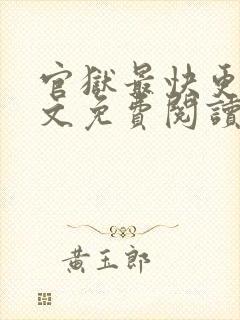 官獄最快更
文免費閱讀
黃玉郎